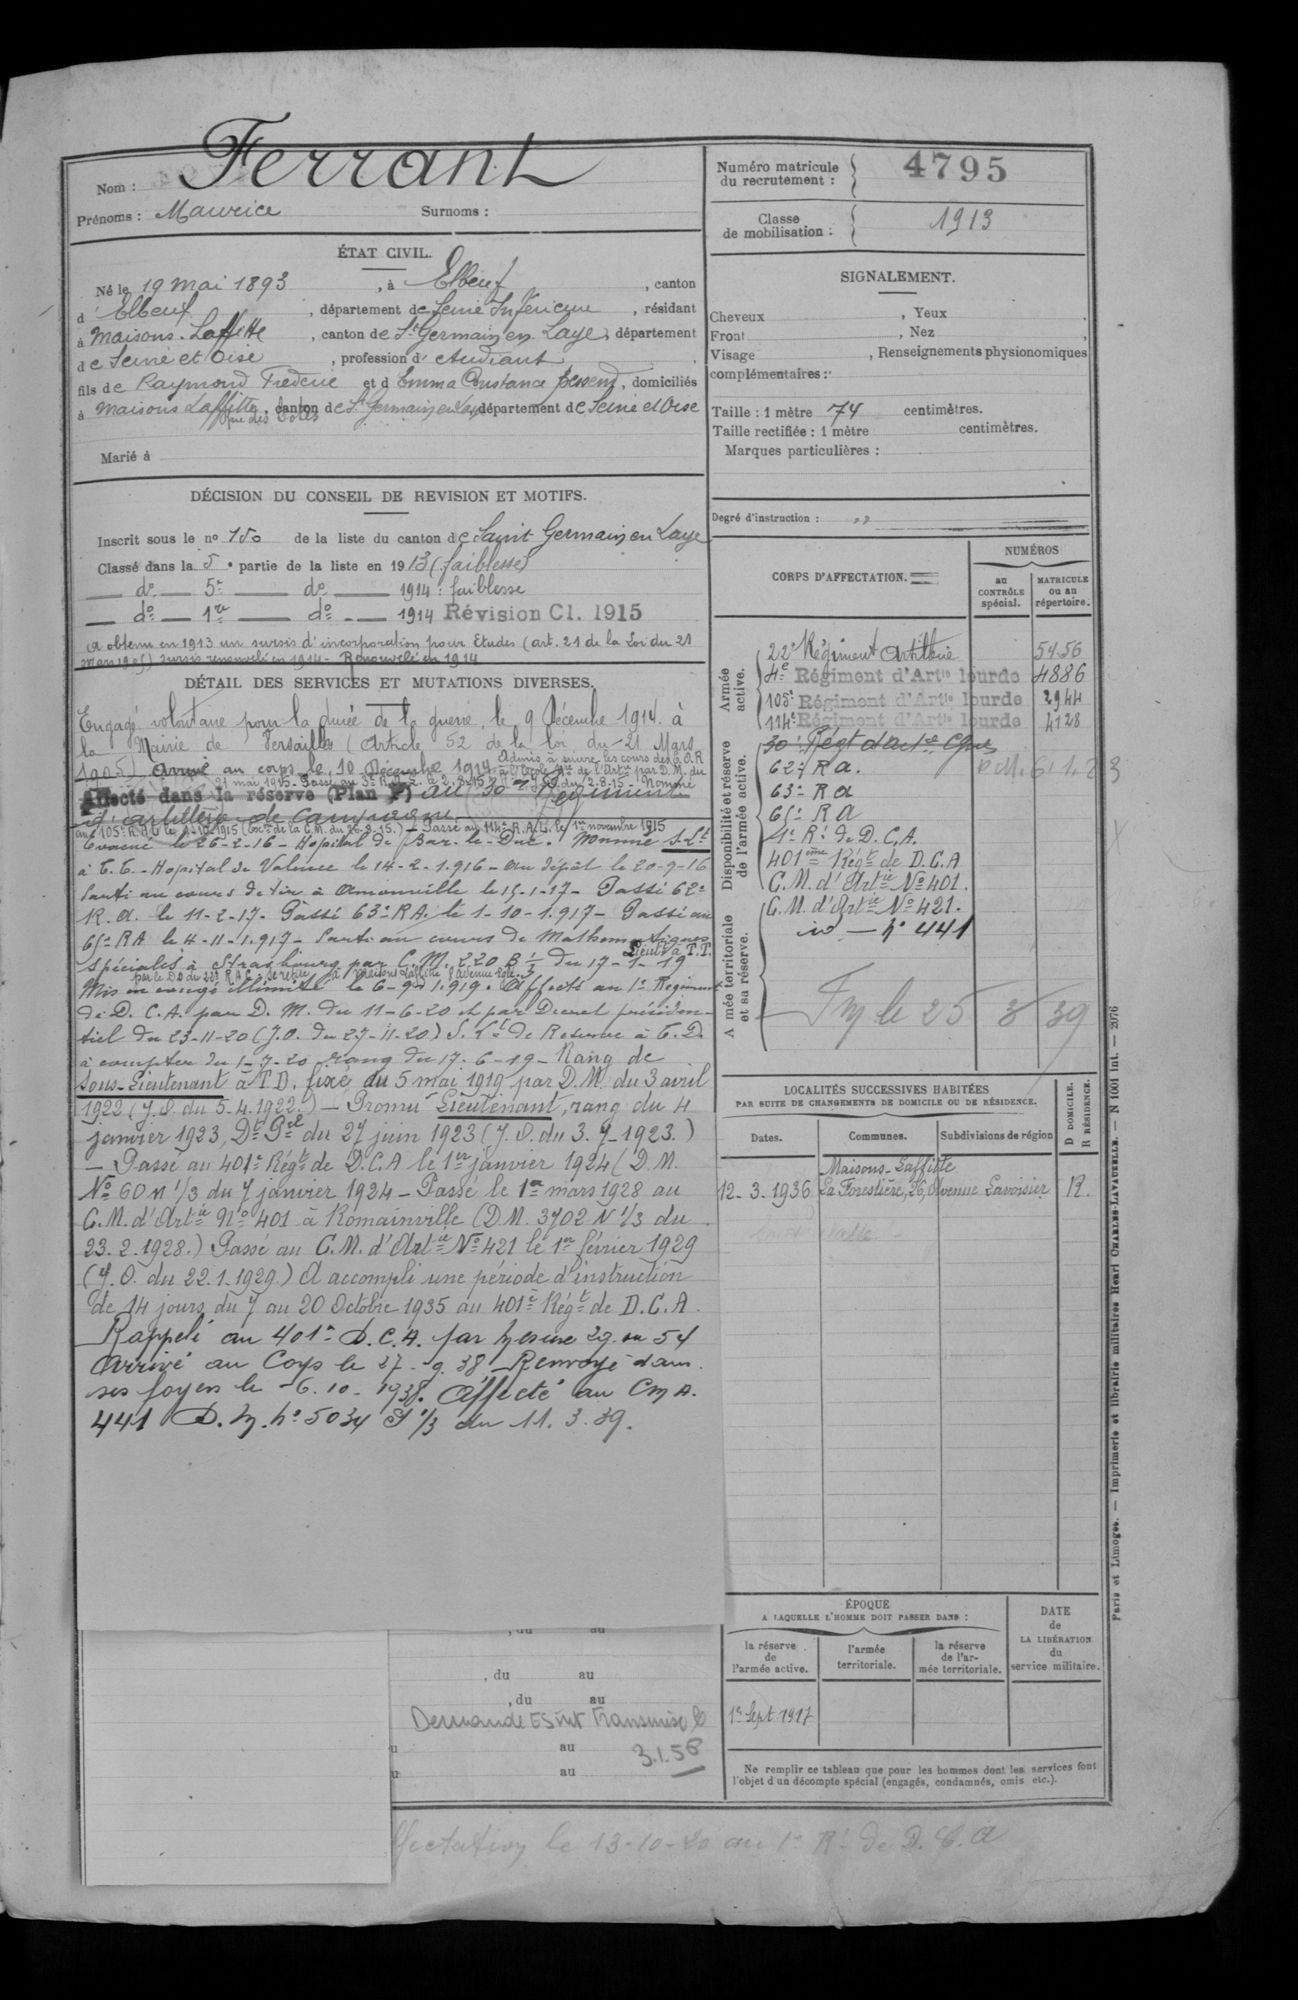 Nom : Ferrant
Prénoms : Maurice Surnoms :
ÉTAT CIVIL.
Né le 19 mai 1893, à Elbeuf, canton
d'Elbeuf, département de Seine Inférieure, résidant
à Maisons-Laffitte, canton de St Germain en Laye, département
de Seine et Oise, profession d'étudiant
fils de Raymond Frédéric et d'Emma Constance, domiciliés
à Maisons Laffitte, canton de St Germain en Laye département de Seine et Oise
rue des Cotes
Marié à
DÉCISION DU CONSEIL DE REVISION ET MOTIFS.
Inscrit sous le no 150 de la liste du canton de Saint Germain en Laye
Classé dans la 5e partie de la liste en 1913 (faiblesse)
— do — 5e — do — 1914 : faiblesse
— do — 1re — do — 1914 Révision Cl. 1915
A obtenu en 1913 un sursis d'incorporation pour Etudes (art. 21 de la Loi du 21
mars 1905) sursis renouvelé en 1914 - Renouvelé en 1914
DÉTAIL DES SERVICES ET MUTATIONS DIVERSES.
Engagé volontaire pour la durée de la guerre, le 9 Décembre 1914 à
la Mairie de Versailles (Article 52 de la loi du 21 Mars
1905) Arrivé au corps le 10 Décembre 1914 Admis à suivre les cours des E.O.R
à l'école de l'Artie par D.M. du
21 mai 1915 - Passé au le 2.8.15 du 2.8.15 - Nommé
Affecté dans la réserve (Plan ) au 30e Régiment
d'artillerie de Campagne
au 105e R.A.L le 1-10-1915 - Passé au 114e R.A.L. le 1er novembre 1915
Evacué le 26-2-16 - Hopital de Bar-le-Duc. Nommé S-Lt
à T.T. - Hopital de Valence le 14-2-1916 - au dépôt le 20-9-16
Parti au cours de tir à Arnouville le 15-1-17 - Passé 62e
R.A. le 11-2-17 - Passé 63e RA. le 1-10-1917 - Passé au
65e RA le 4-11-1917 - Parti au cours de Mathématiques
Lieut à T.T.
spéciales à Strasbourg par C.M. 220 B 1/7 du 17-1-19
se retire à Maisons Laffitte
Mis en congé illimité le 6-9-1919. Affecté au 1er Régiment
de D.C.A. par D.M. du 11-6-20 et par Décret présiden-
tiel du 23-11-20 (J.O. du 27-11-20) S. Lt de Réserve à T.D.
à compter du 1-7-20 rang du 17-6-19 - Rang de
Sous-Lieutenant à T.D, fixé du 5 mai 1919 par D.M. du 3 avril
1922 (J.O. du 5.4.1922.) - Promu Lieutenant, rang du 4
janvier 1923, Dt Pel du 27 juin 1923 (J.O. du 3.7-1923.)
- Passé au 401e Régt de D.C.A le 1er janvier 1924 (D.M.
No 60 N 1/3 du 7 janvier 1924 - Passé le 1er mars 1928 au
C.M. d'Artie No 401 à Romainville (D.M. 3702 N 1/3 du
23.2.1928.) Passé au C.M. d'Artie No 421 le 1er février 1929
(J.O. du 22.1.1929.) A accompli une période d'instruction
de 14 jours, du 7 au 20 Octobre 1935 au 401e Régt de D.C.A.
Rappelé au 401e D.C.A. par mesure 29 ou 54
arrivé au Corps le 27-9-38 - Renvoyé dans
ses foyers le -6.10-1938. Affecté au C M A.
441 D.M. no 5034 S 1/3 du 11.3.39.
, du au
, du au
, du au
Demande ES Transmise le
au 3.1.58
au
ffectation le 13-10-20 au 1er Rt de D.C.A
Numéro matricule
du recrutement : 4795
Classe
de mobilisation : 1913
SIGNALEMENT.
Cheveux , Yeux
Front , Nez
Visage , Renseignements physionomiques
complémentaires :
Taille : 1 mètre 74 centimètres.
Taille rectifiée : 1 mètre centimètres.
Marques particulières :
Degré d'instruction :
CORPS D'AFFECTATION.
NUMÉROS
au
CONTRÔLE
spécial.
MATRICULE
ou au
répertoire.
Armée
active.
22e Régiment Artillerie 5456
4e Régiment d'Artie lourde 4886
105e Régiment d'Artie lourde 2944
114e Régiment d'Artie lourde 4128
Disponibilité et réserve
de l'armée active.
30e Régt d'Artie Cgne
62e R A.
63e R A
65e R A
1er Rt de D.C.A.
401ème Régt de D.C.A
C.M. d'Artie No 401.
A mée territoriale
et sa réserve.
C.M. d'Artie No 421.
id — No 441
25 3 39
LOCALITÉS SUCCESSIVES HABITÉES
PAR SUITE DE CHANGEMENTS DE DOMICILE OU DE RÉSIDENCE.
D DOMICILE.
R RÉSIDENCE.
Dates. Communes. Subdivisions de région
Maisons-Laffitte
12-3.1936 La Forestière, 26, Avenue Lavoisier R.
ÉPOQUE
A LAQUELLE L'HOMME DOIT PASSER DANS :
la réserve
de
l'armée active.
l'armée
territoriale.
la réserve
de l'ar-
mée territoriale.
DATE
de
LA LIBÉRATION
du
service militaire.
1er Sept 1917
Ne remplir ce tableau que pour les hommes dont les services font
l'objet d'un décompte spécial (engagés, condamnés, omis etc.).
Paris et Limoges. — Imprimerie et librairie militaires Henri CHARLES-LAVAUZELLE. — N 1001 Int. — 2076